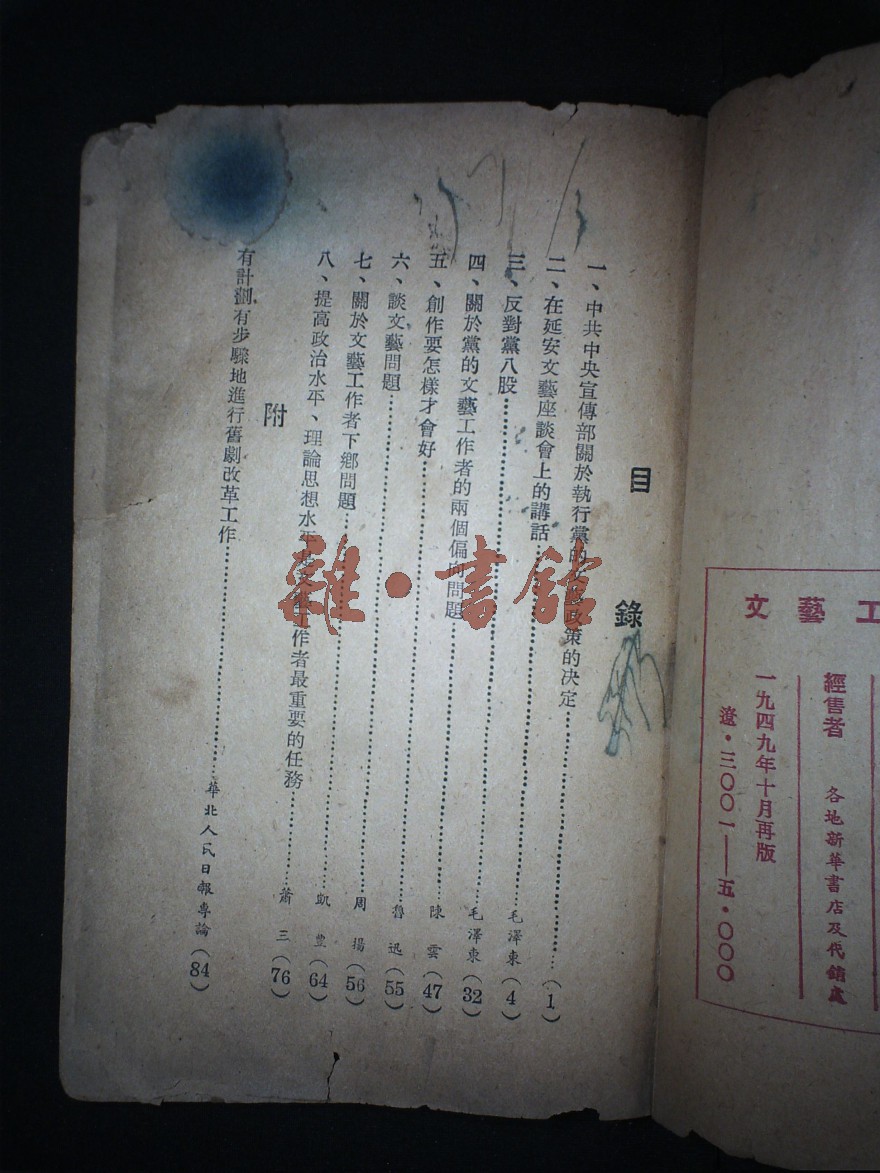 文藝工
經售者 各地新華書店及代銷處
一九四九年十月再版
遼·三〇〇一——五·〇〇〇
目錄
一、中共中央宣傳部關於執行黨的文藝政策的决定……(1)
二、在延安文藝座談會上的講話……毛澤東(4)
三、反對黨八股……毛澤東(32)
四、關於黨的文藝工作者的兩個偏向問題……陳雲(47)
五、創作要怎樣才會好……魯迅(55)
六、談文藝問題……周揚(56)
七、關於文藝工作者下鄉問題……凱豐(64)
八、提高政治水平、理論思想水平是文藝工作者最重要的任務……蕭三(76)
附
有計劃有步驟地進行舊劇改革工作……華北人民日報專論(84)
雜·書館